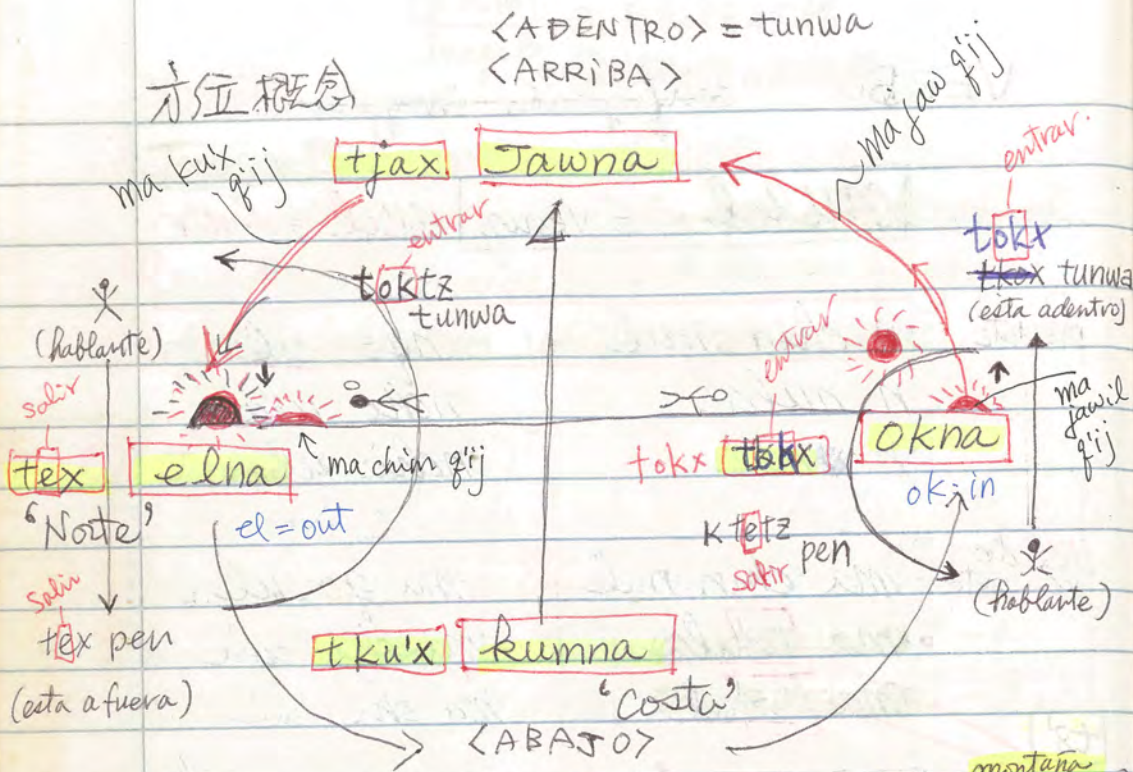 <ADENTRO> = tunwa
<ARRiBA>
方位概念
ma ku'x q'ij
tjax Jawna
ma jaw q'ij
entrar
toktz
tunwa
entrar.
tokx
tkox tunwa
(esta adentro)
(hablante)
salir
tex elna
'Norte'
el = out
ma chim q'ij
entrar
tokx tokx
okna
ok = in
ma jawil q'ij
ktetz pen
salir
(hablante)
salir
tex pen
(esta afuera)
tku'x kumna
'Costa'
<ABAJO>
montaña